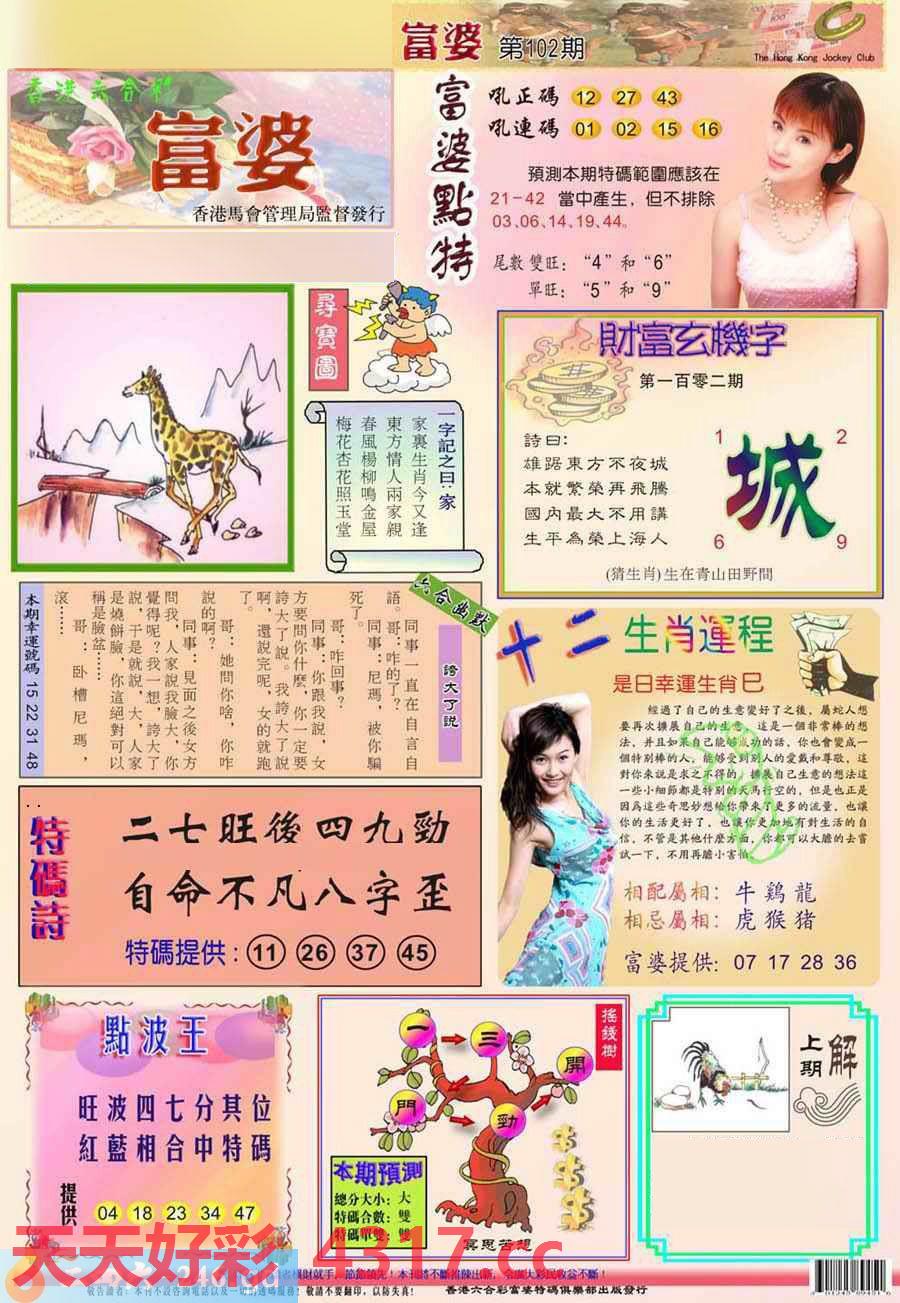 富婆 第102期
The Hong Kong Jockey Club
香港六合彩
富婆
香港馬會管理局監督發行
富婆點特
吼正碼 12 27 43
吼連碼 01 02 15 16
預測本期特碼範圍應該在
21-42 當中產生，但不排除
03.06.14.19.44。
尾數雙旺：“4”和“6”
單旺：“5”和“9”
尋寶圖
一字記之曰：家
家裏生肖今又逢
東方情人兩家親
春風楊柳鳴金屋
梅花杏花照玉堂
財富玄機字
第一百零二期
詩曰:
雄踞東方不夜城
本就繁榮再飛騰
國內最大不用講
生平為榮上海人
城
1 2
6 9
(猜生肖)生在青山田野間
六合幽默
誇大了說
同事一直在自言自
語。哥:咋的了？
同事：尼瑪，被你騙
死了。
哥：咋回事？
同事：你跟我說，女
方要問你什麼，你一定要
誇大了說。我誇大了說
啊，還說完呢，女的就跑
了。
哥：她問你啥，你咋
說的啊？
同事：見面之後女方
問我，人家說我臉大，你
覺得呢？我一想，誇大了
說，于是就說，大，人家
是燒餅臉，你這絕對可以
稱是臉盆……
哥：臥槽尼瑪，
滾……
本期幸運號碼 15 22 31 48
十二生肖運程
是日幸運生肖巳
經過了自己的生意變好了之後，屬蛇人想
要再次擴展自己的生意，這是一個非常棒的想
法，并且如果自己能够成功的話，你也會變成一
個特别棒的人，能够受到别人的愛戴和尊敬，這
對你來説是求之不得的，擴展自己生意的想法這
一些小細節都是特别的天馬行空的，但是也正是
因爲這些奇思妙想給你帶來了更多的流量，也讓
你的生活更好了，也讓你更加地有對生活的自
信，不管是其他什麽方面，你都可以大膽的去嘗
試一下，不用再膽小害怕。
相配屬相：牛雞龍
相忌屬相：虎猴猪
富婆提供：07 17 28 36
特碼詩
二七旺後四九勁
自命不凡八字歪
特碼提供：11 26 37 45
點波王
旺波四七分其位
紅藍相合中特碼
提供 04 18 23 34 47
搖錢樹
一 三 開
門 勁
本期預測
總分大小：大
特碼合數：雙
特碼單雙：雙
冥思苦想
上期解
天天好彩 4317.cc
橫財就手，節節領先！本刊將不斷推陳出新，令廣大彩民收益不斷！
敬告讀者：本刊不設咨詢電話以及一切的透碼服務！敬請不要翻印，以防失真！
香港六合彩富婆特碼俱樂部出版發行